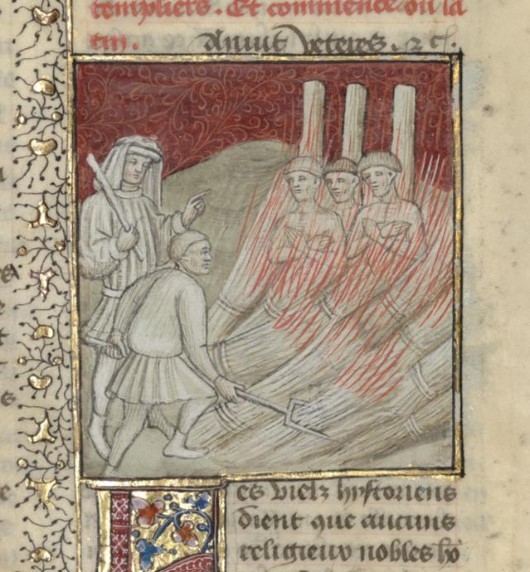 templiers. Et commence ou la
tin.
Anuit veteres. ⁊ c̃.
es vielz hystoriens
dient que aucuns
religieux nobles hō